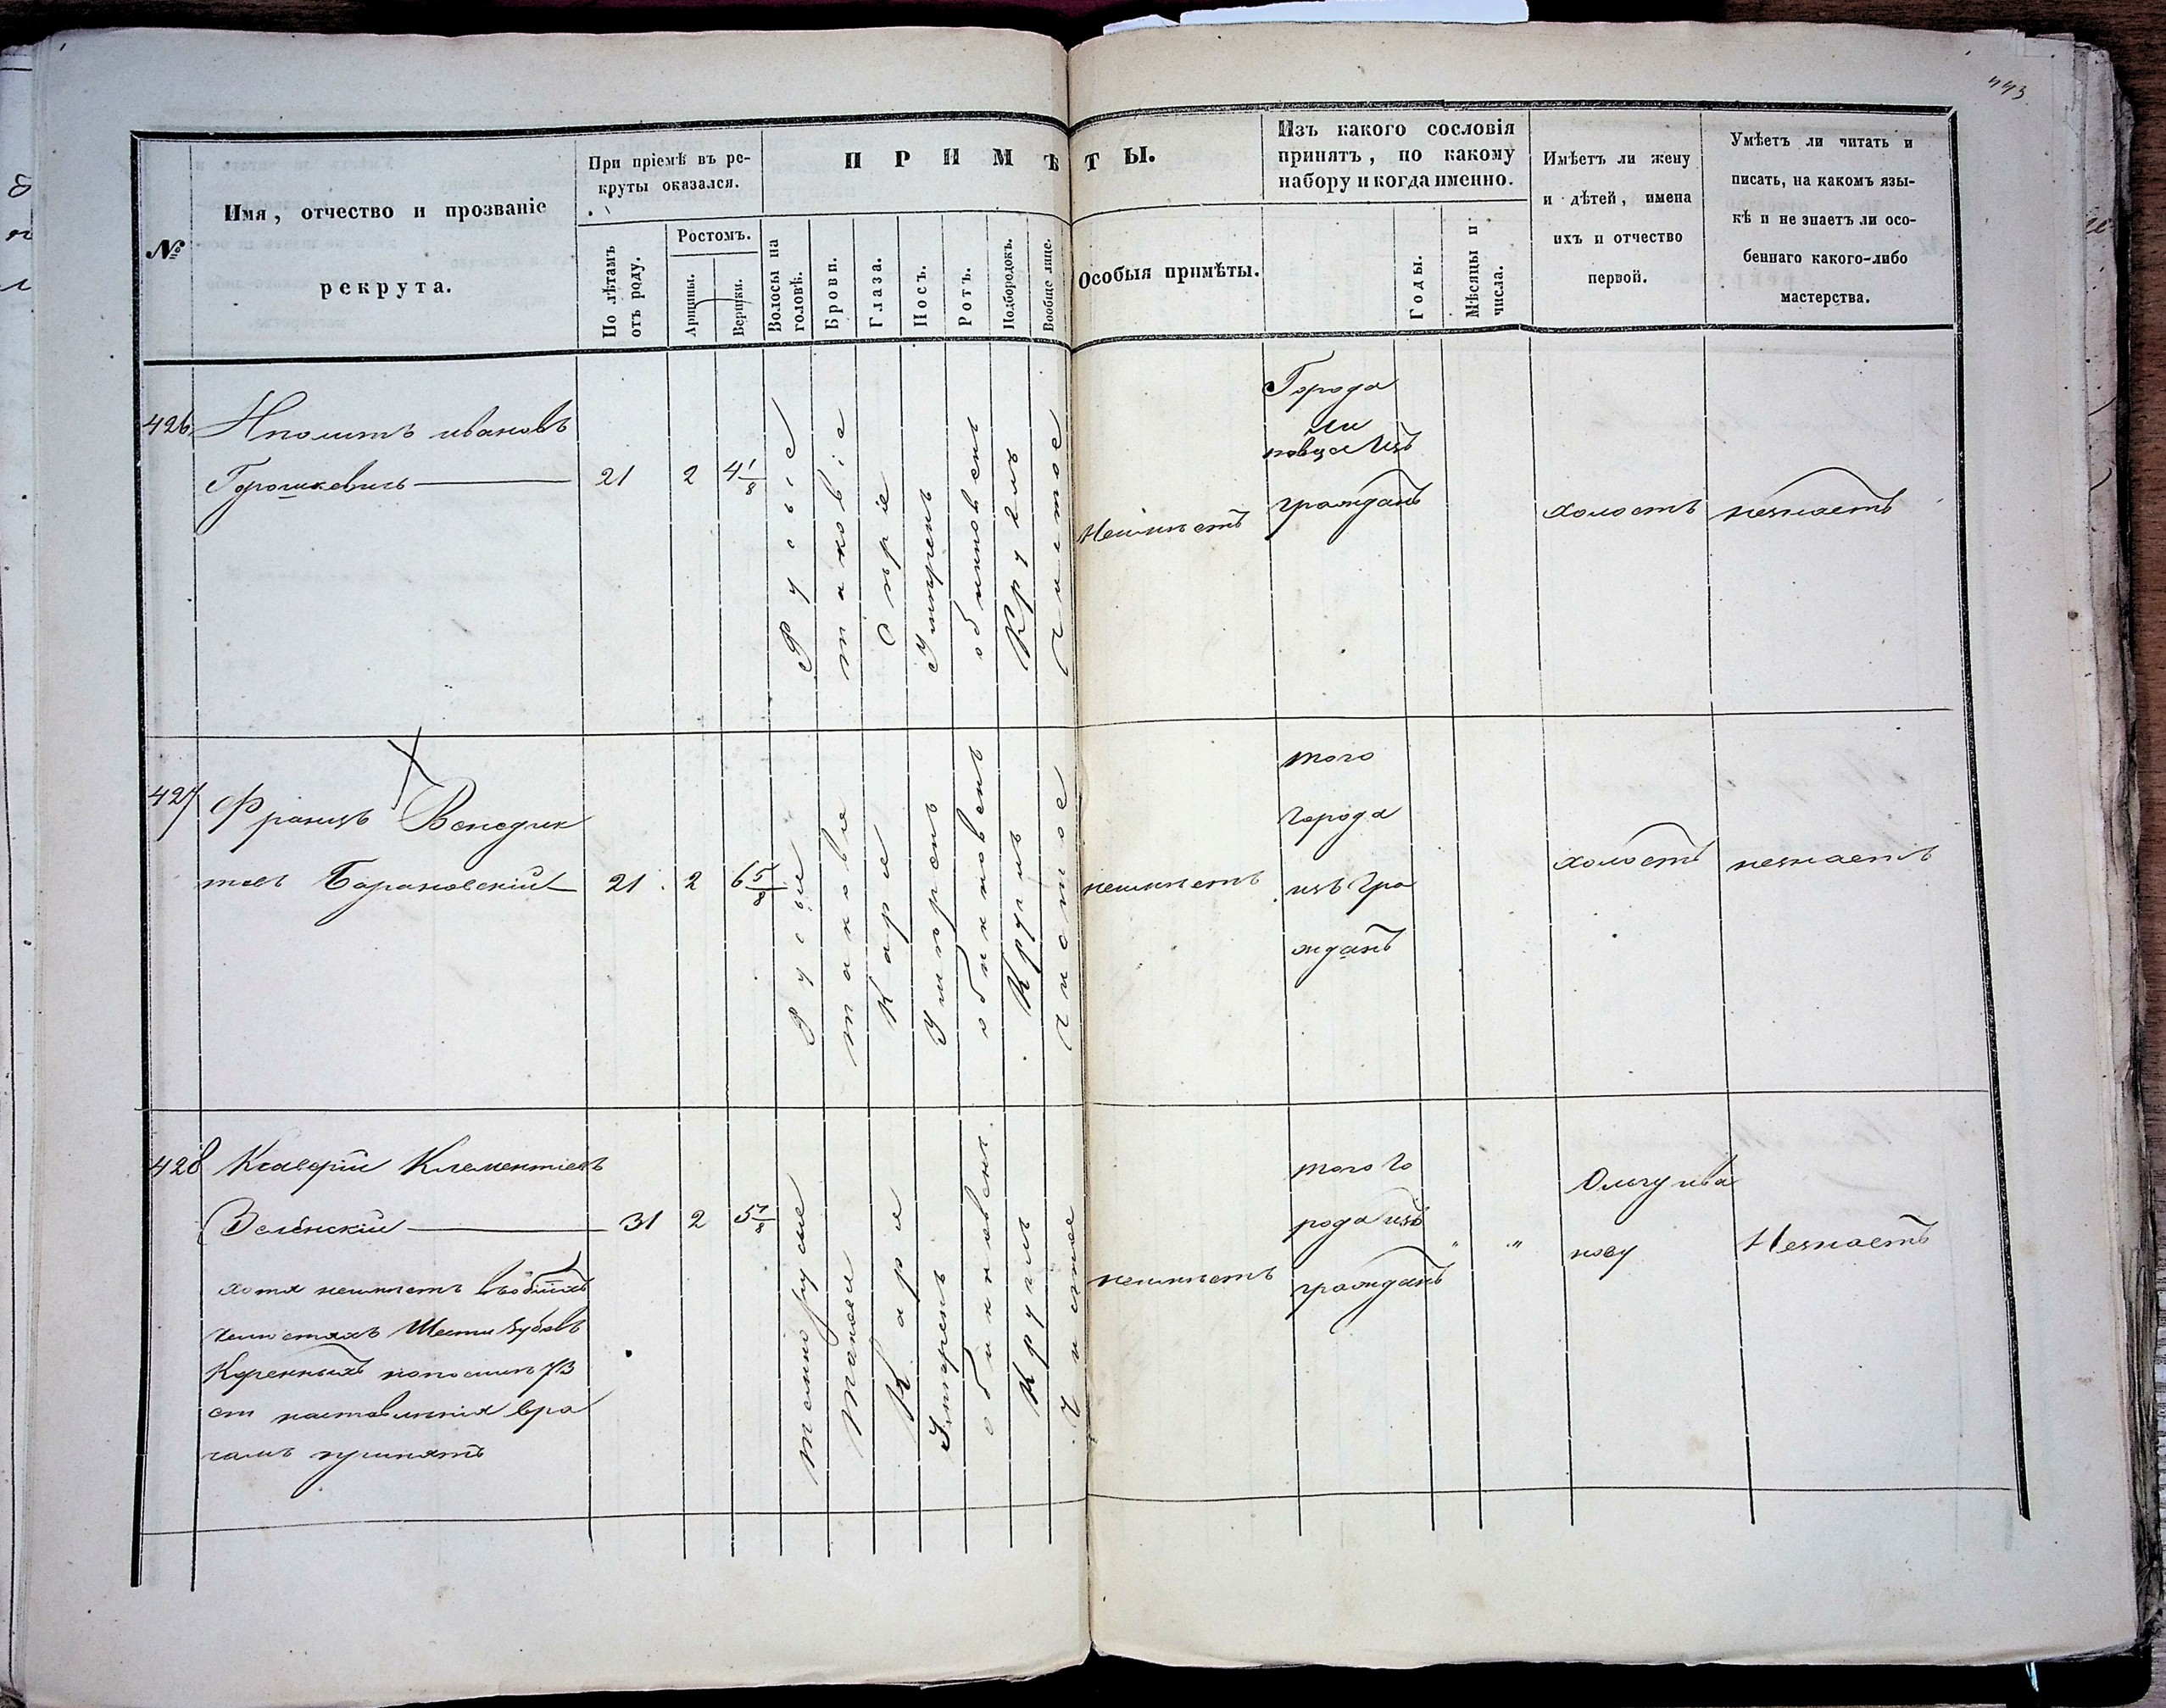 443
№
Имя, отчество и прозваніе
рекрута.
При пріемѣ въ ре-
круты оказался.
По лѣтамъ
отъ роду.
Ростомъ.
Аршины.
Вершки.
ПРИМѢТЫ.
Волосы на
головѣ.
Брови.
Глаза.
Носъ.
Ротъ.
Подбородокъ.
Вообще лице.
Особыя примѣты.
Изъ какого сословія
принятъ, по какому
набору и когда именно.
Годы.
Мѣсяцы и
числа.
Имѣетъ ли жену
и дѣтей, имена
ихъ и отчество
первой.
Умѣетъ ли читать и
писать, на какомъ язы-
кѣ и не знаетъ ли осо-
беннаго какого-либо
мастерства.
426
Иполитъ ивановъ
Горошкевичь
21
2
4 1/8
Русые
таковіе
Сѣріе
Умѣренъ
обикновенъ
Круглъ
Чистое
Неимѣетъ
Города
Ли
повца Изъ
гражданъ
холостъ
незнаетъ
427
Францъ Венедик
товъ Барановскій
21
2
6 5/8
Русые
таковые
Карые
Умѣренъ
обикновенъ
Круглъ
Чистое
неимѣетъ
того
города
изъ Гра
жданъ
холостъ
незнаетъ
428
Ксаверій Клементіевъ
Зелѣнскій
хотя неимѣетъ
Шести зубовъ
Коренныхъ
наставленія вра
чамъ принятъ
31
2
5 7/8
темнорусые
Таковы
Карые
Умѣренъ
обикновенъ
Круглъ
Чистое
неимѣетъ
того Го
рода изъ
гражданъ
" "
Ольгу ива
нову
Незнаетъ